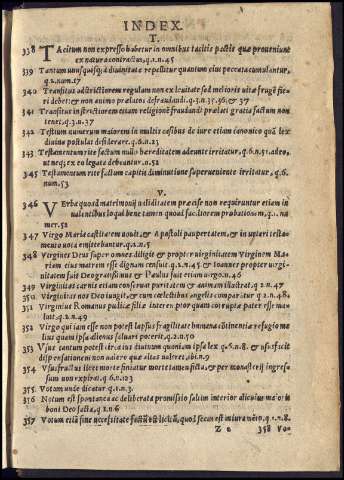 INDEX.
T.
338 TAcitum non expresso habetur in omnibus tacitis pactis quæ proueniunt
ex natura contractus, q.1.n.45
339 Tantum unusquisq; a diuinitate repellitur quantum eius peccata cumulantur,
q.2.num.17
340 Transitus ad strictiorem regulam non ex leuitate sed melioris uitæ fruge fie
ri debet: & non animo prælatos defraudandi. q.3.n.35.36. & 37
341 Transitus in strictiorem etiam religionē fraudandi prælati gratia factum non
tenet, q.3.n.37
342 Testium numerum maiorem in multis casibus de iure etiam canonico quā lex
diuina postulat desiderare. q.6.n.23
343 Testamentum rite factum nullo hæreditatem adeunte irritatur, q.6.n.51. adeo,
ut neq; ex eo legata debeantur. n.52
345 Testamentum rite factum capitis diminutione superueniente irritatur, q.6.
num.53
V.
346 VErba quo ad matrimonij ualiditatem præcise non requiruntur etiam in
ualentibus loqui bene tamen quo ad faciliorem probationem, q.1. nu
mer.52
347 Virgo Maria castitatem uouit, & Apostoli paupertatem, & in ueteri testa
mento uota emittebantur. q.1.n.5
348 Virgines Deus super omnes diligit & propter uirginitatem Virginem Ma-
riam eius matrem esse dignam censuit q.2.n.45. & Ioannes propter uirgi-
nitatem fuit Deo gratissimus & Paulus fuit etiam uirgo. n.46
349 Virginitas carnis etiam conseruat puritatem & animam illustrat. q.2.n.47
350 Virginitas nos Deo iungit, & cum cœlestibus angelis comparatur q.2.n.48.
351 Virginius Romanus publicæ filiæ interemptor quam corruptæ pater esse ma-
luit. q.2.n.49
352 Virgo qui iam esse non potest lapsus fragilitate humana cōtinentiæ refugio me
lius quam ipsa dionus saluari poterit, q.2.n.50
353 Vsus tantum potest citra ius diuinum quoniam ipsa lex q.6.n.8. & usu facit
dispensationem non ualere quæ alias ualeret, ibi.n.9
354 Vsusfructus licet morte finiatur morte tamen ficta, & per monasterij ingres-
sum non expirat. q.6.n.123
355 Votum unde dicatur q.1.n.3.
356 Votum est spontanea ac deliberata promissio saltim interior alicuius maioris
boni Deo facta, q.1.n.6
357 Votum etiā sine necessitate factū est licitū, quod secus est in iuramēto. q.1.n.8.
Z 2 358 Vo-